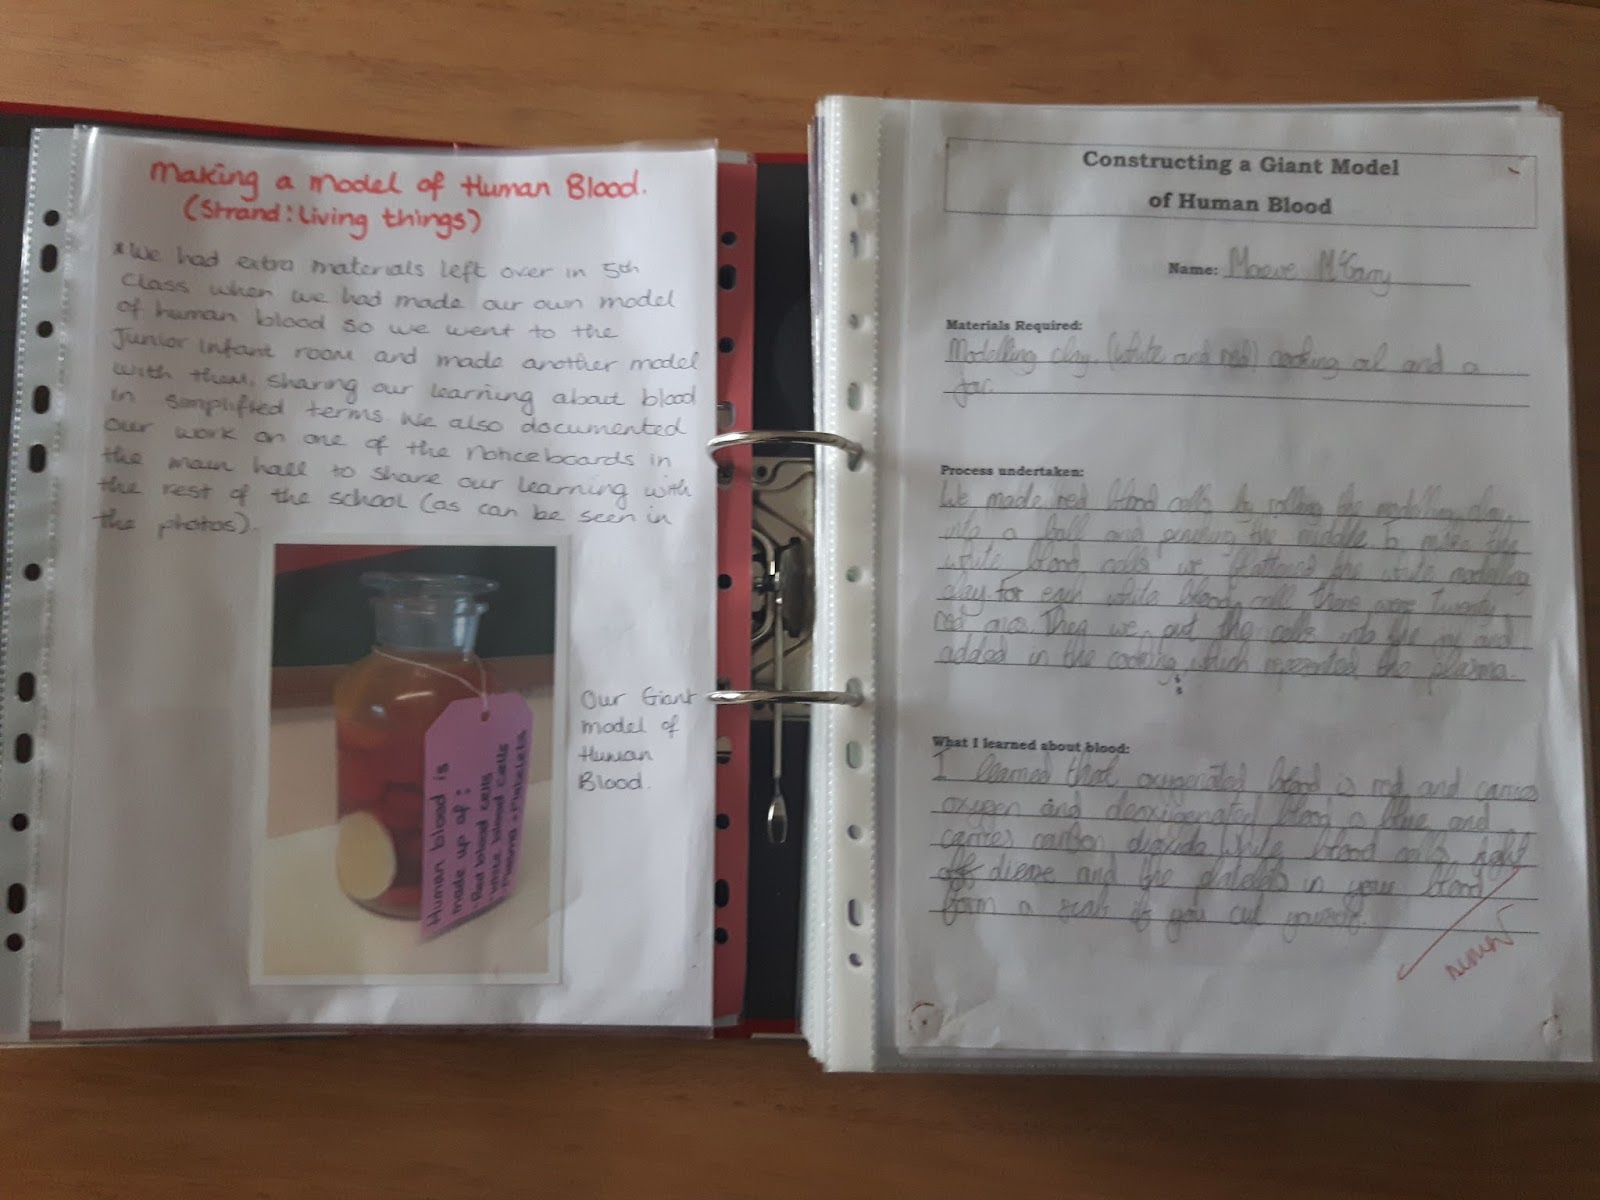 Making a Model of Human Blood.
(Strand: Living things)
*We had extra materials left over in 5th
Class when we had made our own model
of human blood so we went to the
Junior Infant room and made another model
with them, sharing our learning about blood
in simplified terms. We also documented
our work on one of the noticeboards in
the main hall to share our learning with
the rest of the school (as can be seen in
the photos).
Human blood is
made up of:
· Red blood cells
· white blood cells
· Plasma · Platelets
Our Giant
model of
Human
Blood.
Constructing a Giant Model
of Human Blood
Name: Maeve McGarry
Materials Required:
Modelling clay, (white and red) cooking oil and a
jar.
Process undertaken:
We made red blood cells by rolling the modelling clay
into a ball and pinching the middle. To make the
white blood cells we flattened the white modelling
clay. For each white blood cell there were twenty
red ones. Then we put the cells into the jar and
added in the cooking which represented the plasma.
What I learned about blood:
I learned that oxygenated blood is red and carries
oxygen and deoxigenated blood is blue and
carries carbon dioxide. White blood cells fight
off diease and the platelets in your blood
form a scab if you cut yourself.